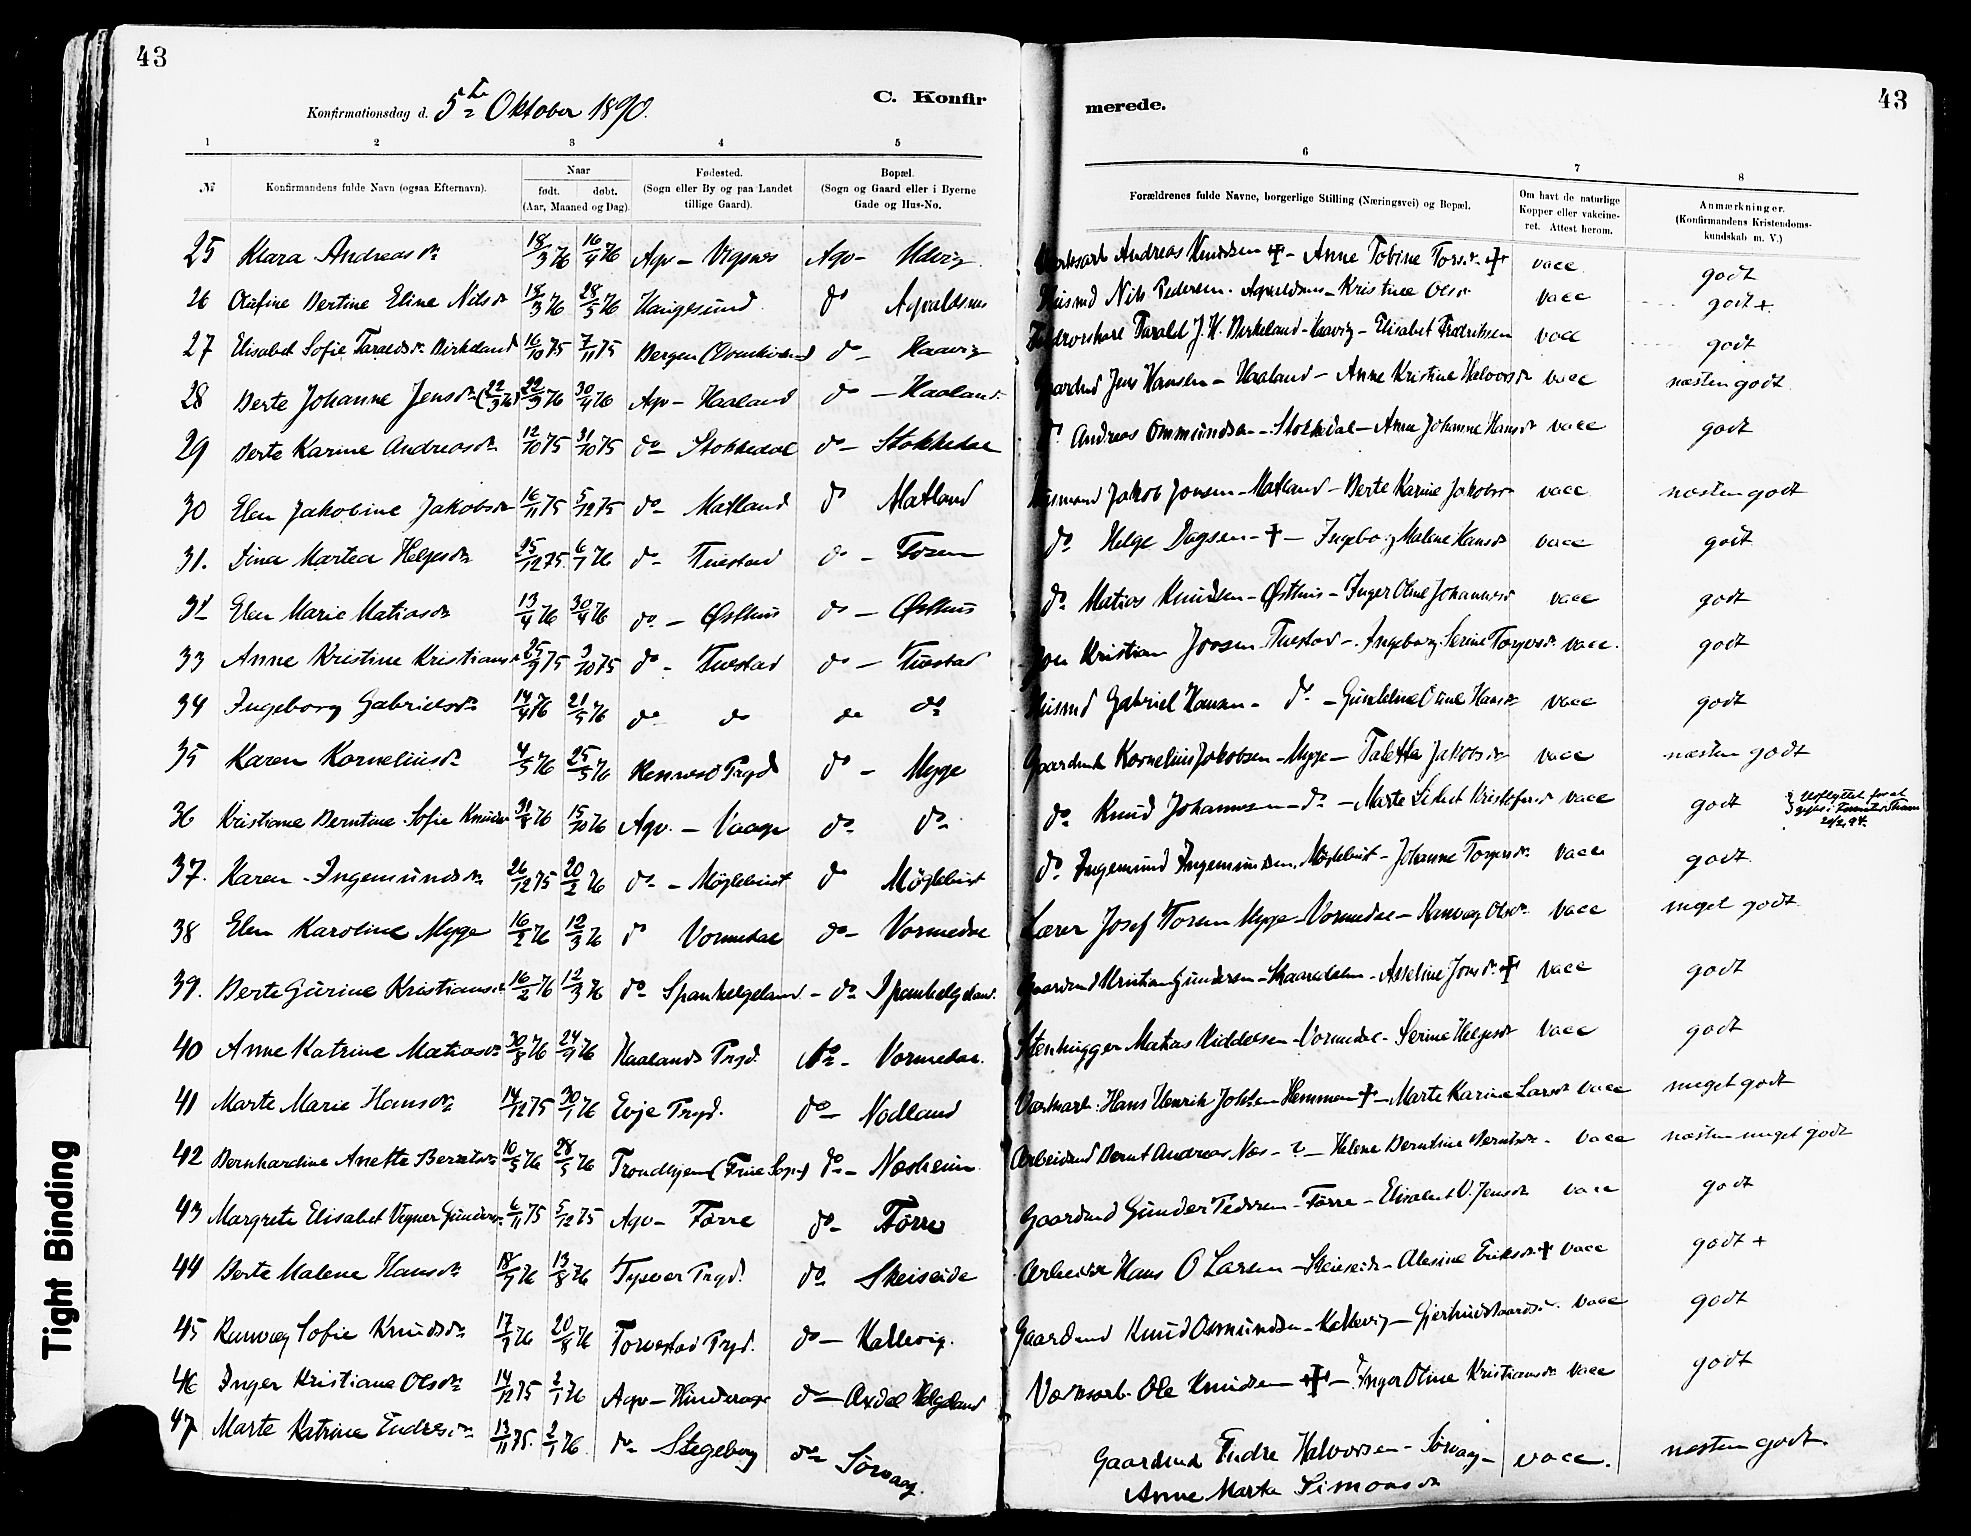 43
Konfirmationsdag d. 5te Oktober 1890.
C. Konfir
merede.
43
1 2 3 4 5 6 7 8
№ Konfirmandens fulde Navn (ogsaa Efternavn). Naar født. døbt. (Aar, Maaned og Dag). Fødested. (Sogn eller By og paa Landet tillige Gaard). Bopæl. (Sogn og Gaard eller i Byerne Gade og Hus-No. Forældrenes fulde Navne, borgerlige Stilling (Næringsvei) og Bopæl. Om havt de naturlige Kopper eller vakcineret. Attest herom. Anmærkninger. (Konfirmandens Kristendomskundskab m. V.)
25 Klara Andreasdr 18/3 76 16/4 76 Agv - Vigsnes Agv - Udvig Andreas Knudsen + - Anne Tobine + vacc godt
26 Olufine Bertine Eline Nilsdr 18/3 76 28/5 76 Haugesund do Agvaldsnes Husmd Nils Pedersen - Agvaldsnes - Kristine Olsdr vacc godt +
27 Elisabet Sofie Taraldsdr Birkeland 16/10 75 7/11 75 Bergen do - Haavig Tarald J. H. Birkeland - Haavig - Elisabet Fredriksen vacc godt
28 Berte Johanne Jensdr (22/3 76) 22/3 76 30/4 76 Agv - Haaland do - Haaland Gaardmd Jens Hansen - Haaland - Anne Kristine Halvorsdr vacc næsten godt
29 Berte Karine Andreasdr 12/10 75 31/10 75 do - Stokkedal do - Stokkedal do Andreas Ommundsen - Stokkdal - Anne Johanne Hansdr vacc godt
30 Elen Jakobine Jakobsdr 16/11 75 5/12 75 do - Matland do Matland Husmand Jakob Jonsen - Matland - Berte Karine Jakobsdr vacc næsten godt
31. Dina Martea Helgesdr 25/12 75 6/1 76 do - Tuestad do - Tosen do Helge Dagsen - + - Ingeborg Malene Hansdr vacc godt
32 Elen Marie Matiasdr 13/4 76 30/4 76 do - Østhus do - Østhus do Matias Knudsen - Østhus - Inger Oline Johannesdr vacc godt
33 Anne Kristine Kristiansdr 25/9 75 3/10 75 do - Tuestad do - Tuestad Kristian Joosen Tuestad - Ingeborg Serine Torgersdr vacc. godt
34 Ingeborg Gabrielsdr 14/4 76 21/5 76 do do do do Husmd Gabriel Hansen - do - Gunheline Oline Hansdr vacc godt
35 Karen Korneliusdr 4/5 76 25/5 76 Rennesø Prgd do - Myge Gaardmd Kornelius Jakobsen - Myge - Taletta Jakobsdr vacc næsten godt
36 Kristiane Berntine Sofie Knudsdr 31/8 76 15/10 76 Agv. - Vaage do do do Knud Johannesen - do - Marte Lisbet Kristofersdr vacc godt Udflyttet for at giftes i 20/2 94.
37. Karen Ingemundsdr 26/12 75 20/2 76 do - Møglebust do Møglebust do Ingemund Ingemundsen Møglebust - Johanne Torgersdr vacc godt
38 Elen Karoline Myge 16/2 76 12/3 76 do Vormedal do - Vormedal Lærer Josef Tosen Myge - Vormedal - Ranveg Olsdr vacc meget godt
39. Berte Gurine Kristiansdr 16/2 76 12/3 76 do Spanhelgeland - do Spanhelgeland Gaardmd Kristian Gundersen - Skaaredalen - Asseline Jonsdr + vacc godt
40 Anne Katrine Matiasdr 30/8 76 24/9 76 Haalands Prgd. do - Vormedal. Stenhugger Matias Viddelsen - Vormedal - Serine Helgesdr vacc godt
41 Marte Marie Hansdr 14/12 75 30/1 76 Evje Prgd. do - Nodland Værksarb: Hans Henrik Johsen Hemmen + - Marte Karine Larsdr vacc meget godt
42 Bernhardine Anette Berntsdr 10/5 76 28/5 76 Trondhjem (Frue Sogn) do - Nesheim Arbeidsmd Bernt Andreas Næs - ? - Helene Berntine Berntsdr - vacc næsten meget godt
43 Margrete Elisabet Vegner Gundersdr 6/11 75 5/12 75 Agv - Førre do - Førre Gaardmd Gunder Pedersen - Førre - Elisabet V. Jensdr vacc godt
44 Berte Malene Hansdr 18/7 76 13/8 76 Tysvær Prgd. do - Skeiseide Arbeider Hans O Larsen - Skeiseide - Alesine Eriksdr + vacc godt +
45 Ranveg Sofie Knudsdr 17/7 76 20/8 76 Torvestad Prgd. do - Kallevig. Gaardmd Knud Osmundsen - Kallevig - Gjertrud vacc godt
46 Inger Kristiane Olsdr 14/12 75 2/1 76 Agv - Hinderage do - Axdal Helgeland Værksarb. Ole Knudsen + - Inger Oline Kristiansdr vacc godt
47 Marte Katrine Endresdr 13/11 75. 2/1 76. do Stegeberg do Sørvaag. Gaardmd Endre Halvorsen - Sørvaag - vacc. næsten godt.
Anne Marta Simonsdr
Tight Binding